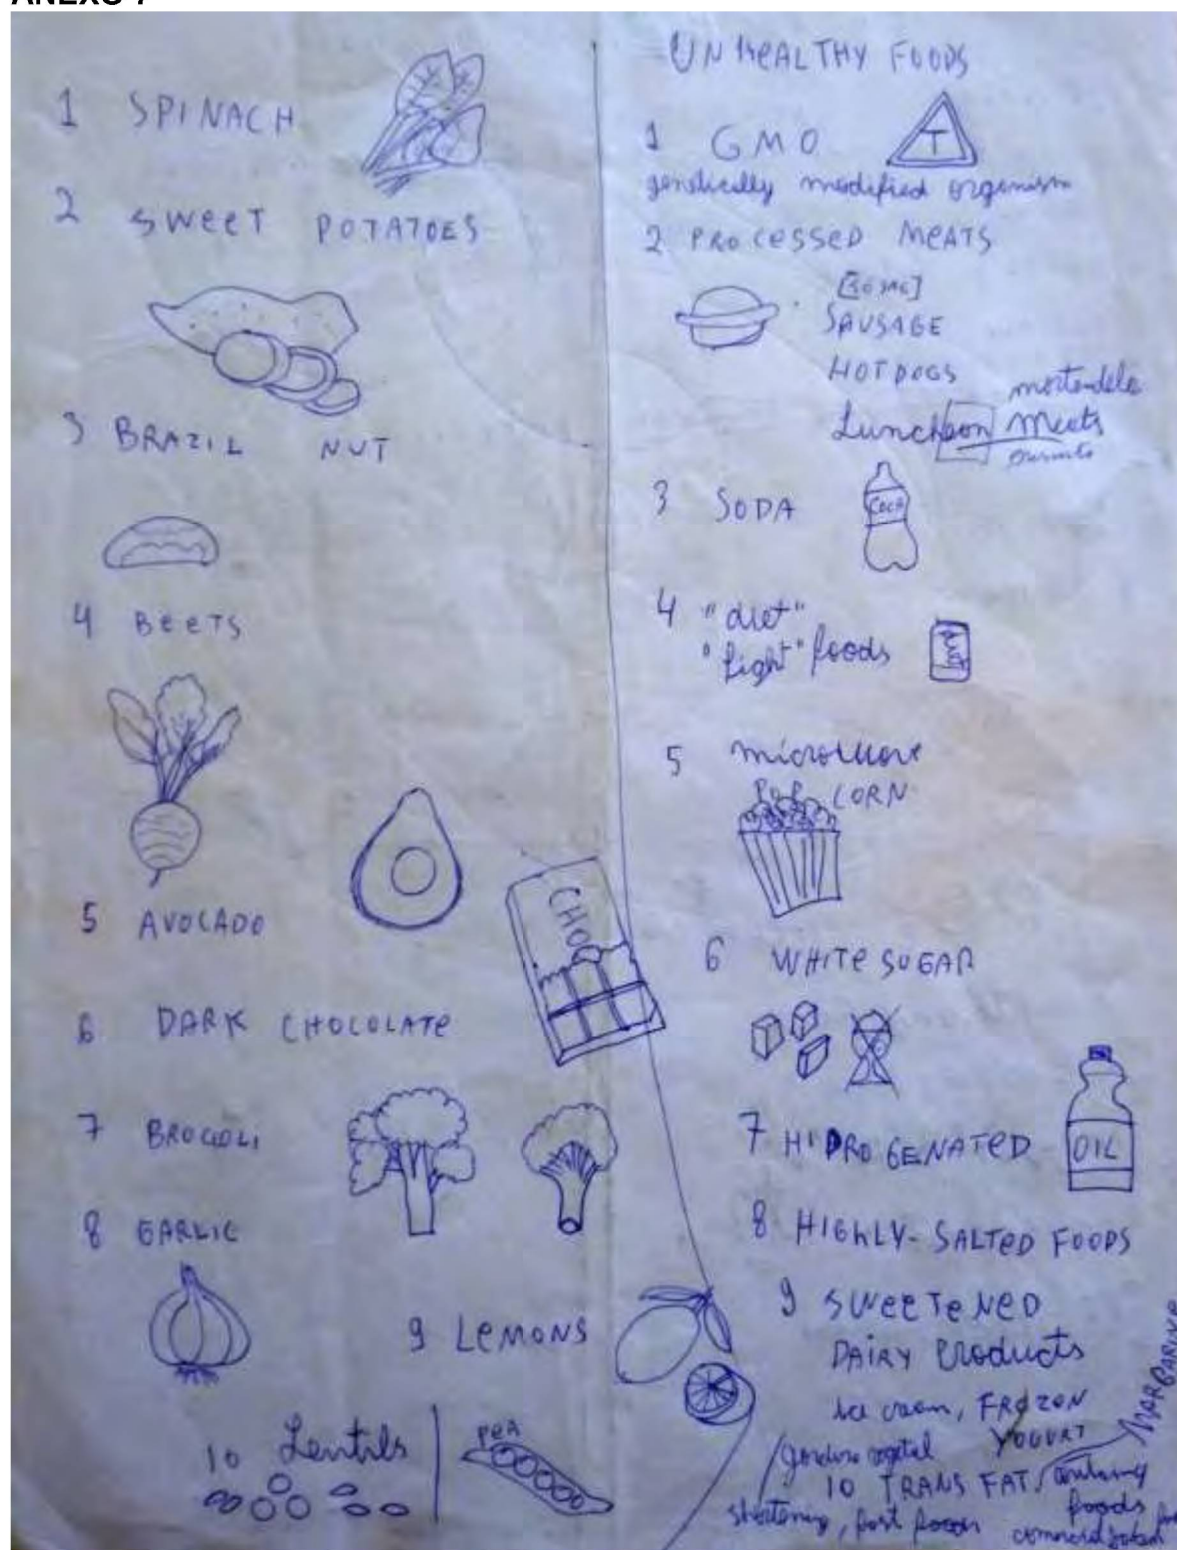 1 SPINACH
2 SWEET POTATOES
3 BRAZIL NUT
4 BEETS
5 AVOCADO
6 DARK CHOCOLATE
CHO
7 BROCOLI
8 GARLIC
9 LEMONS
10 Lentils
PEA
UNHEALTHY FOODS
1 GMO
T
genetically modified organism
2 PROCESSED MEATS
SAUSAGE
HOT DOGS
mortadela
Luncheon Meats
presunto
3 SODA
COCA
4 "diet"
"light" foods
5 microwave
POP CORN
6 WHITE SUGAR
7 HIDROGENATED
OIL
8 HIGHLY-SALTED FOODS
9 SWEETENED
DAIRY Products
Ice cream, FROZEN
YOGURT
MARGARINE
gordura vegetal
10 TRANS FAT
foods
shortening, fast foods